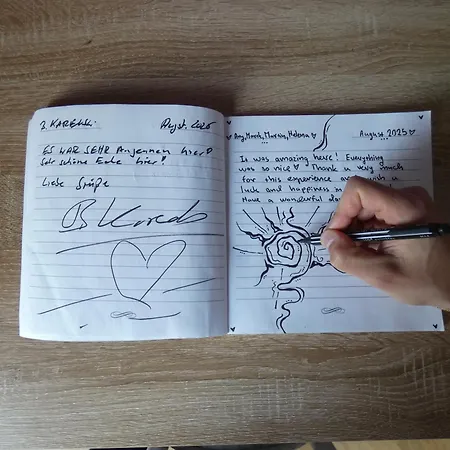 B. KARELSKI
August. 2025
ES WAR SEHR Angenehm hier
Sehr schöne Ecke hier!
Liebe Grüße
Amy, Marek, Marvin, Helena
August 2025
It was amazing here! Everything
was so nice! Thank u very much
for this experience and
luck and happiness
Have a wonderful